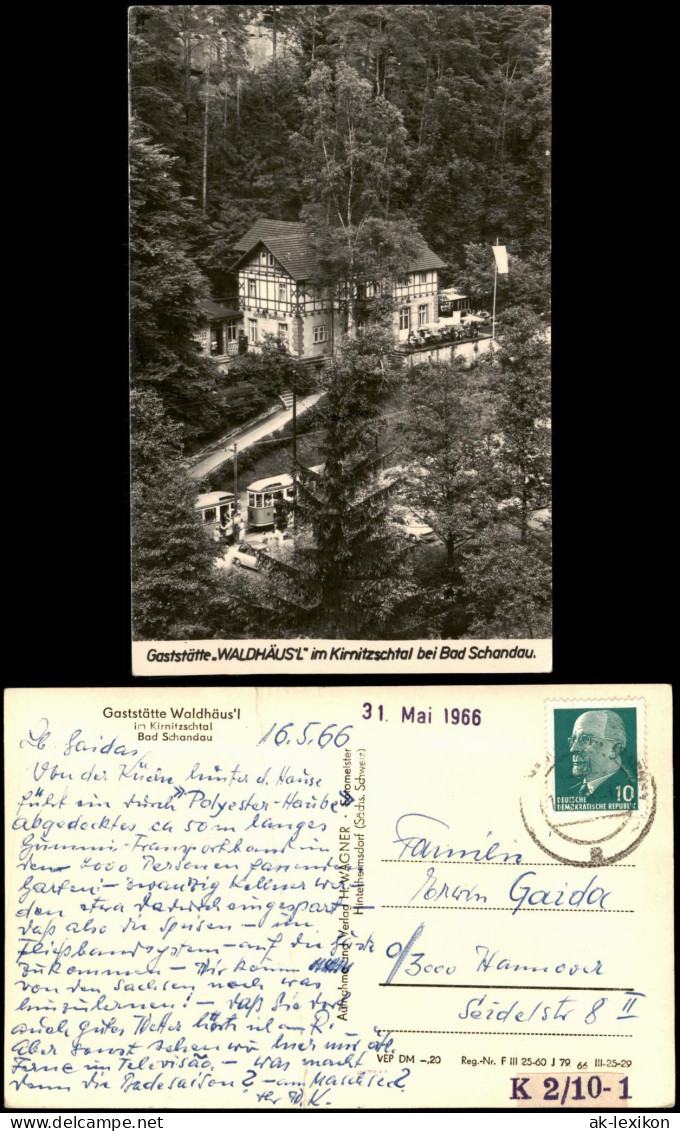 Gaststätte „WALDHÄUS'L" im Kirnitzschtal bei Bad Schandau.
Gaststätte Waldhäus'l
im Kirnitzschtal
Bad Schandau
31. Mai 1966
16.5.66
Von der hinter d. Hause
führt ein durch "Polyester-Haube"
abgedecktes, ca 50 m langes
Gummi-Transportband in
den 2000 Personen fassenden
Garten! – zwanzig Kellner wur
den etwa dadurch eingespart –
daß also die Speisen – im
Fließbandsystem – auf die
zukommen – Wir
von den Sachsen noch was
hinzulernen! – daß Sie dort
auch gutes Wetter
Aber sonst sehen wir hier und
Ferne im – was macht
denn die Badesaison? – am Maschsee?
Aufnahme und Verlag H. WAGNER · Fotomeister
Hinterhermsdorf (Sächs. Schweiz)
10
DEUTSCHE
DEMOKRATISCHE REPUBLIK
Familie
Erwin Gaida
3000 Hannover
Seidelstr 8 II
VEP DM –,20 Reg.-Nr. F III 25-60 J 79 66 III-25-29
K 2/10-1
ak-lexikon